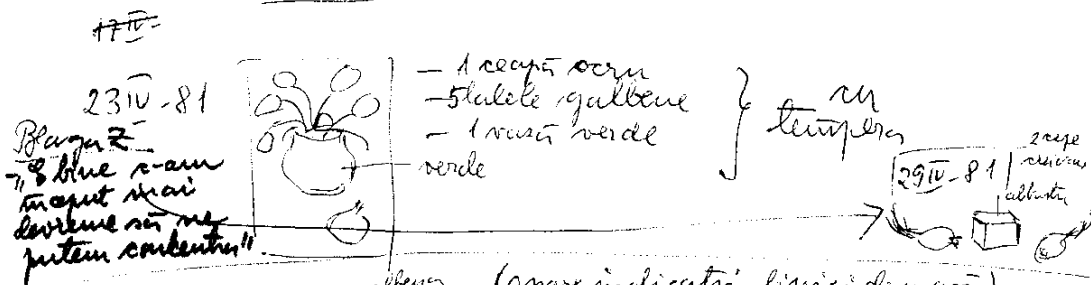 17 IV
23 IV-81
Blaga Z
„E bine c-am
început mai
devreme să ne
putem concentra".
- 1 ceapă ocru
- 5 lalele galbene
- 1 vază verde
verde
cu
tempera
29 IV-81
2 cepe
albastru